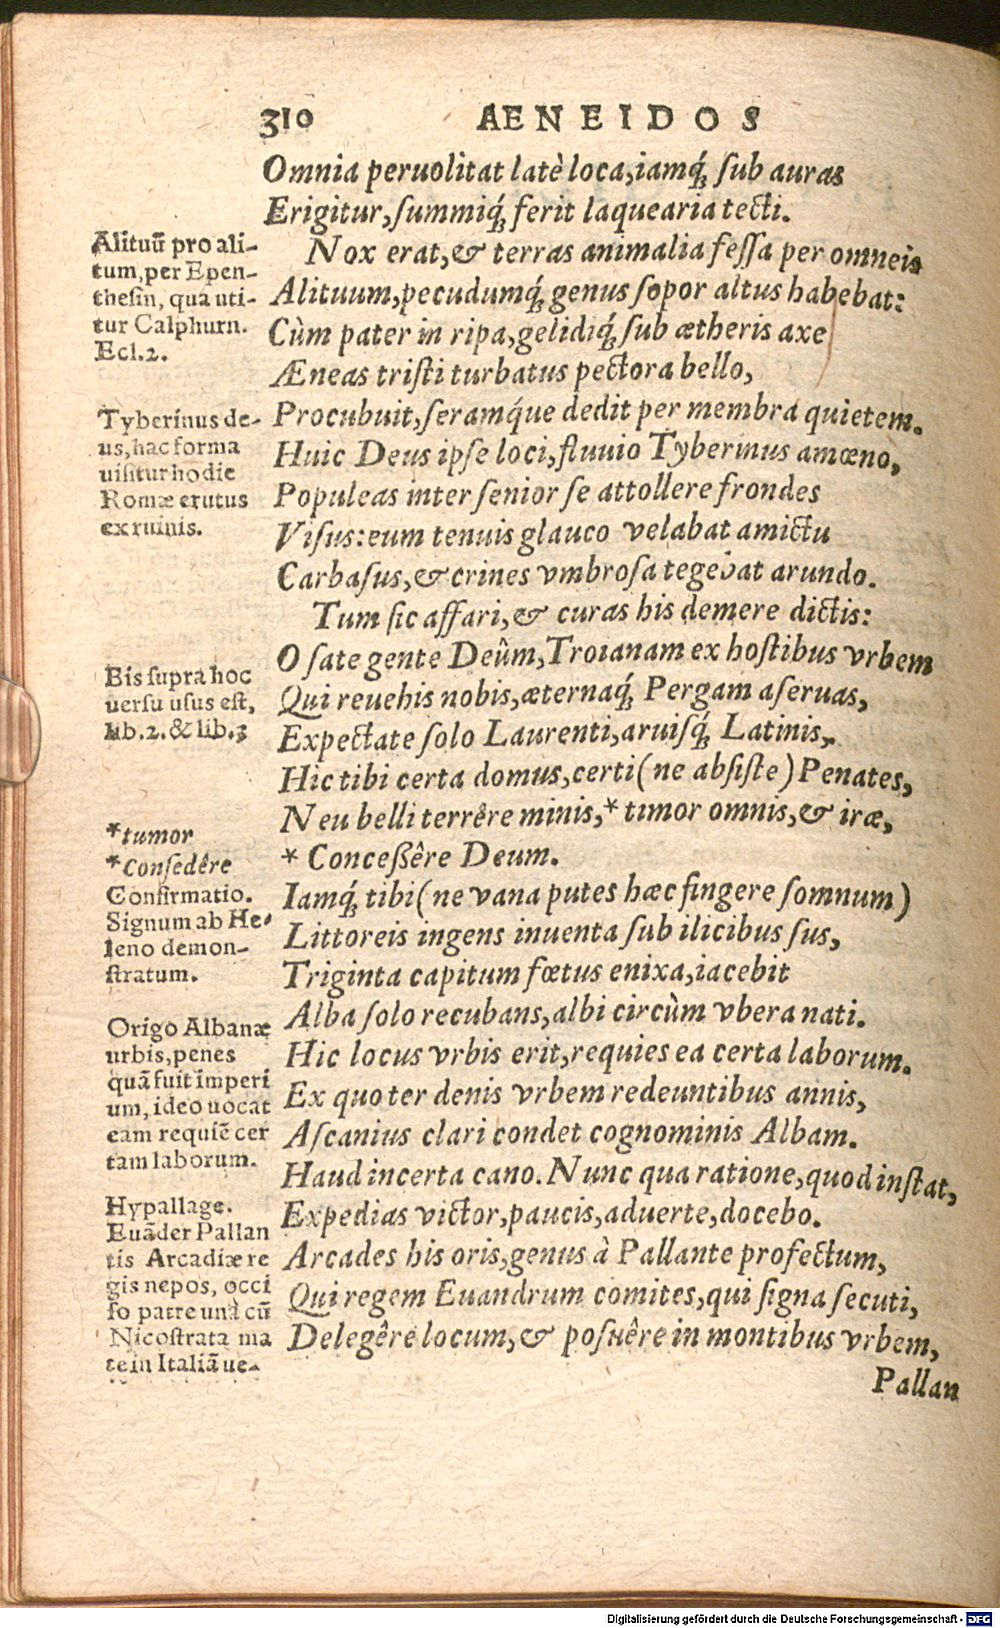 310 AENEIDOS
Omnia peruolitat latè loca,iamq́; ſub auras
Erigitur,ſummiq́; ferit laquearia tecti.
Nox erat,& terras animalia feſſa per omneis
Alituum,pecudumq́; genus ſopor altus habebat:
Cùm pater in ripa,gelidiq́; ſub ætheris axe
Æneas triſti turbatus pectora bello,
Procubuit,ſeramq́ue dedit per membra quietem.
Huic Deus ipſe loci,fluuio Tyberinus amœno,
Populeas inter ſenior ſe attollere frondes
Viſus:eum tenuis glauco velabat amictu
Carbaſus,& crines vmbroſa tegebat arundo.
Tum ſic affari,& curas his demere dictis:
O ſate gente Deûm,Troianam ex hoſtibus vrbem
Qui reuehis nobis,æternaq́; Pergam aſeruas,
Expectate ſolo Laurenti,aruiſq́; Latinis,
Hic tibi certa domus,certi(ne abſiſte)Penates,
Neu belli terrêre minis,*timor omnis,& iræ,
* Conceßêre Deum.
Iamq́; tibi(ne vana putes hæc fingere ſomnum)
Littoreis ingens inuenta ſub ilicibus ſus,
Triginta capitum fœtus enixa,iacebit
Alba ſolo recubans,albi circùm vbera nati.
Hic locus vrbis erit,requies ea certa laborum.
Ex quo ter denis vrbem redeuntibus annis,
Aſcanius clari condet cognominis Albam.
Haud incerta cano.Nunc qua ratione,quod inſtat,
Expedias victor,paucis,aduerte,docebo.
Arcades his oris,genus à Pallante profectum,
Qui regem Euandrum comites,qui ſigna ſecuti,
Delegêre locum,& poſuêre in montibus vrbem,
Pallan
Alituū pro ali-
tum,per Epen-
theſin, qua uti-
tur Calphurn.
Ecl.2.
Tyberinus de-
us,hac forma
uiſitur hodie
Romæ erutus
ex ruinis.
Bis ſupra hoc
uerſu uſus eſt,
lib.2.& lib.3
*tumor
*Conſedêre
Confirmatio.
Signum ab He-
leno demon-
ſtratum.
Origo Albanæ
urbis,penes
quā fuit imperi
um, ideo uocat
eam requiē cer
tam laborum.
Hypallage.
Euāder Pallan
tis Arcadiæ re
gis nepos, occi
ſo patre unà cū
Nicoſtrata ma
te in Italiā ue-
Digitalisierung gefördert durch die Deutsche Forschungsgemeinschaft - DFG